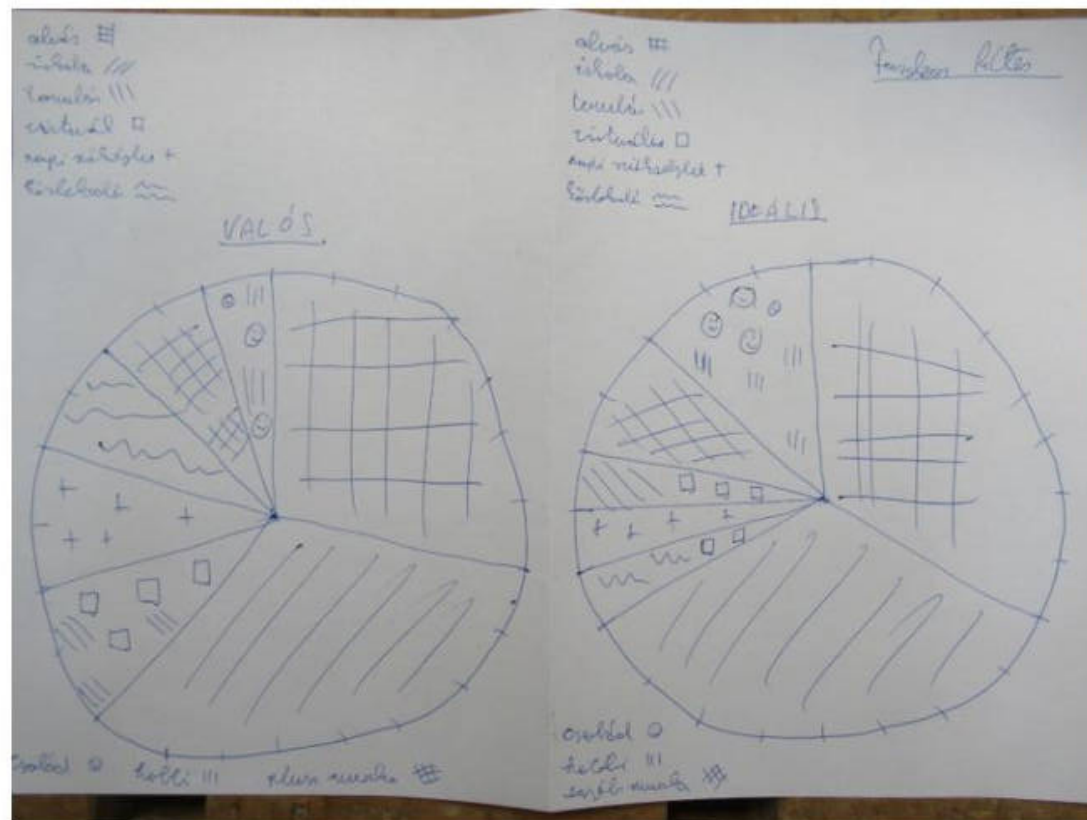 alvás
iskola
tanulás
virtuál
napi szükséglet
közlekedő
VALÓS
család
hobbi
plusz munka
alvás
iskola
tanulás
virtuális
napi szükséglet
közlekedő
IDEÁLIS
család
hobbi
munka